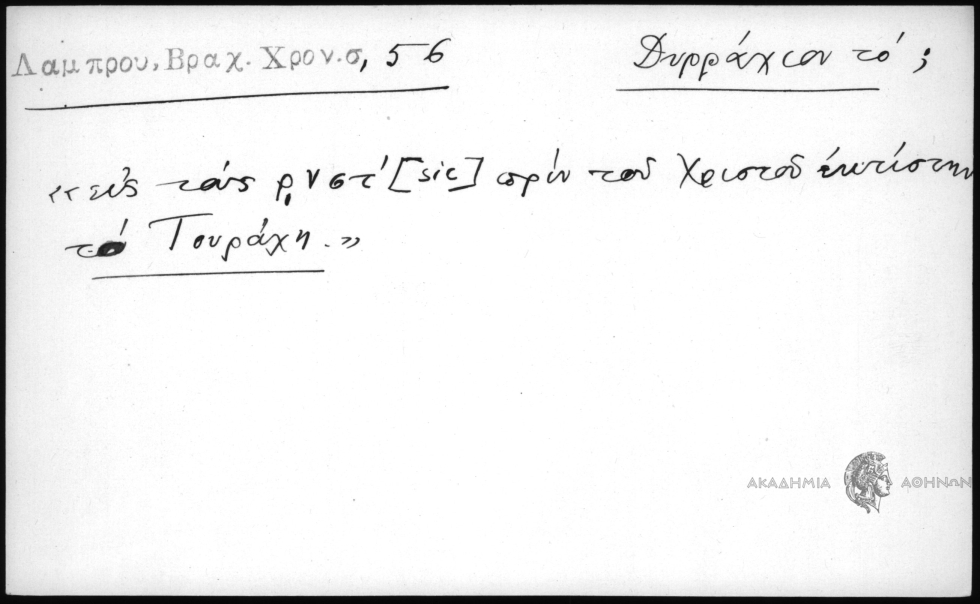 Λαμπρου, Βραχ. Χρον. σ, 56
Δυρράχιον τό ;
«εἰς τοὺς ρνστ´ [sic] πρὶν τοῦ Χριστοῦ ἐκτίστην
τὸ Τουράχη.»
ΑΚΑΔΗΜΙΑ ΑΘΗΝΩΝ